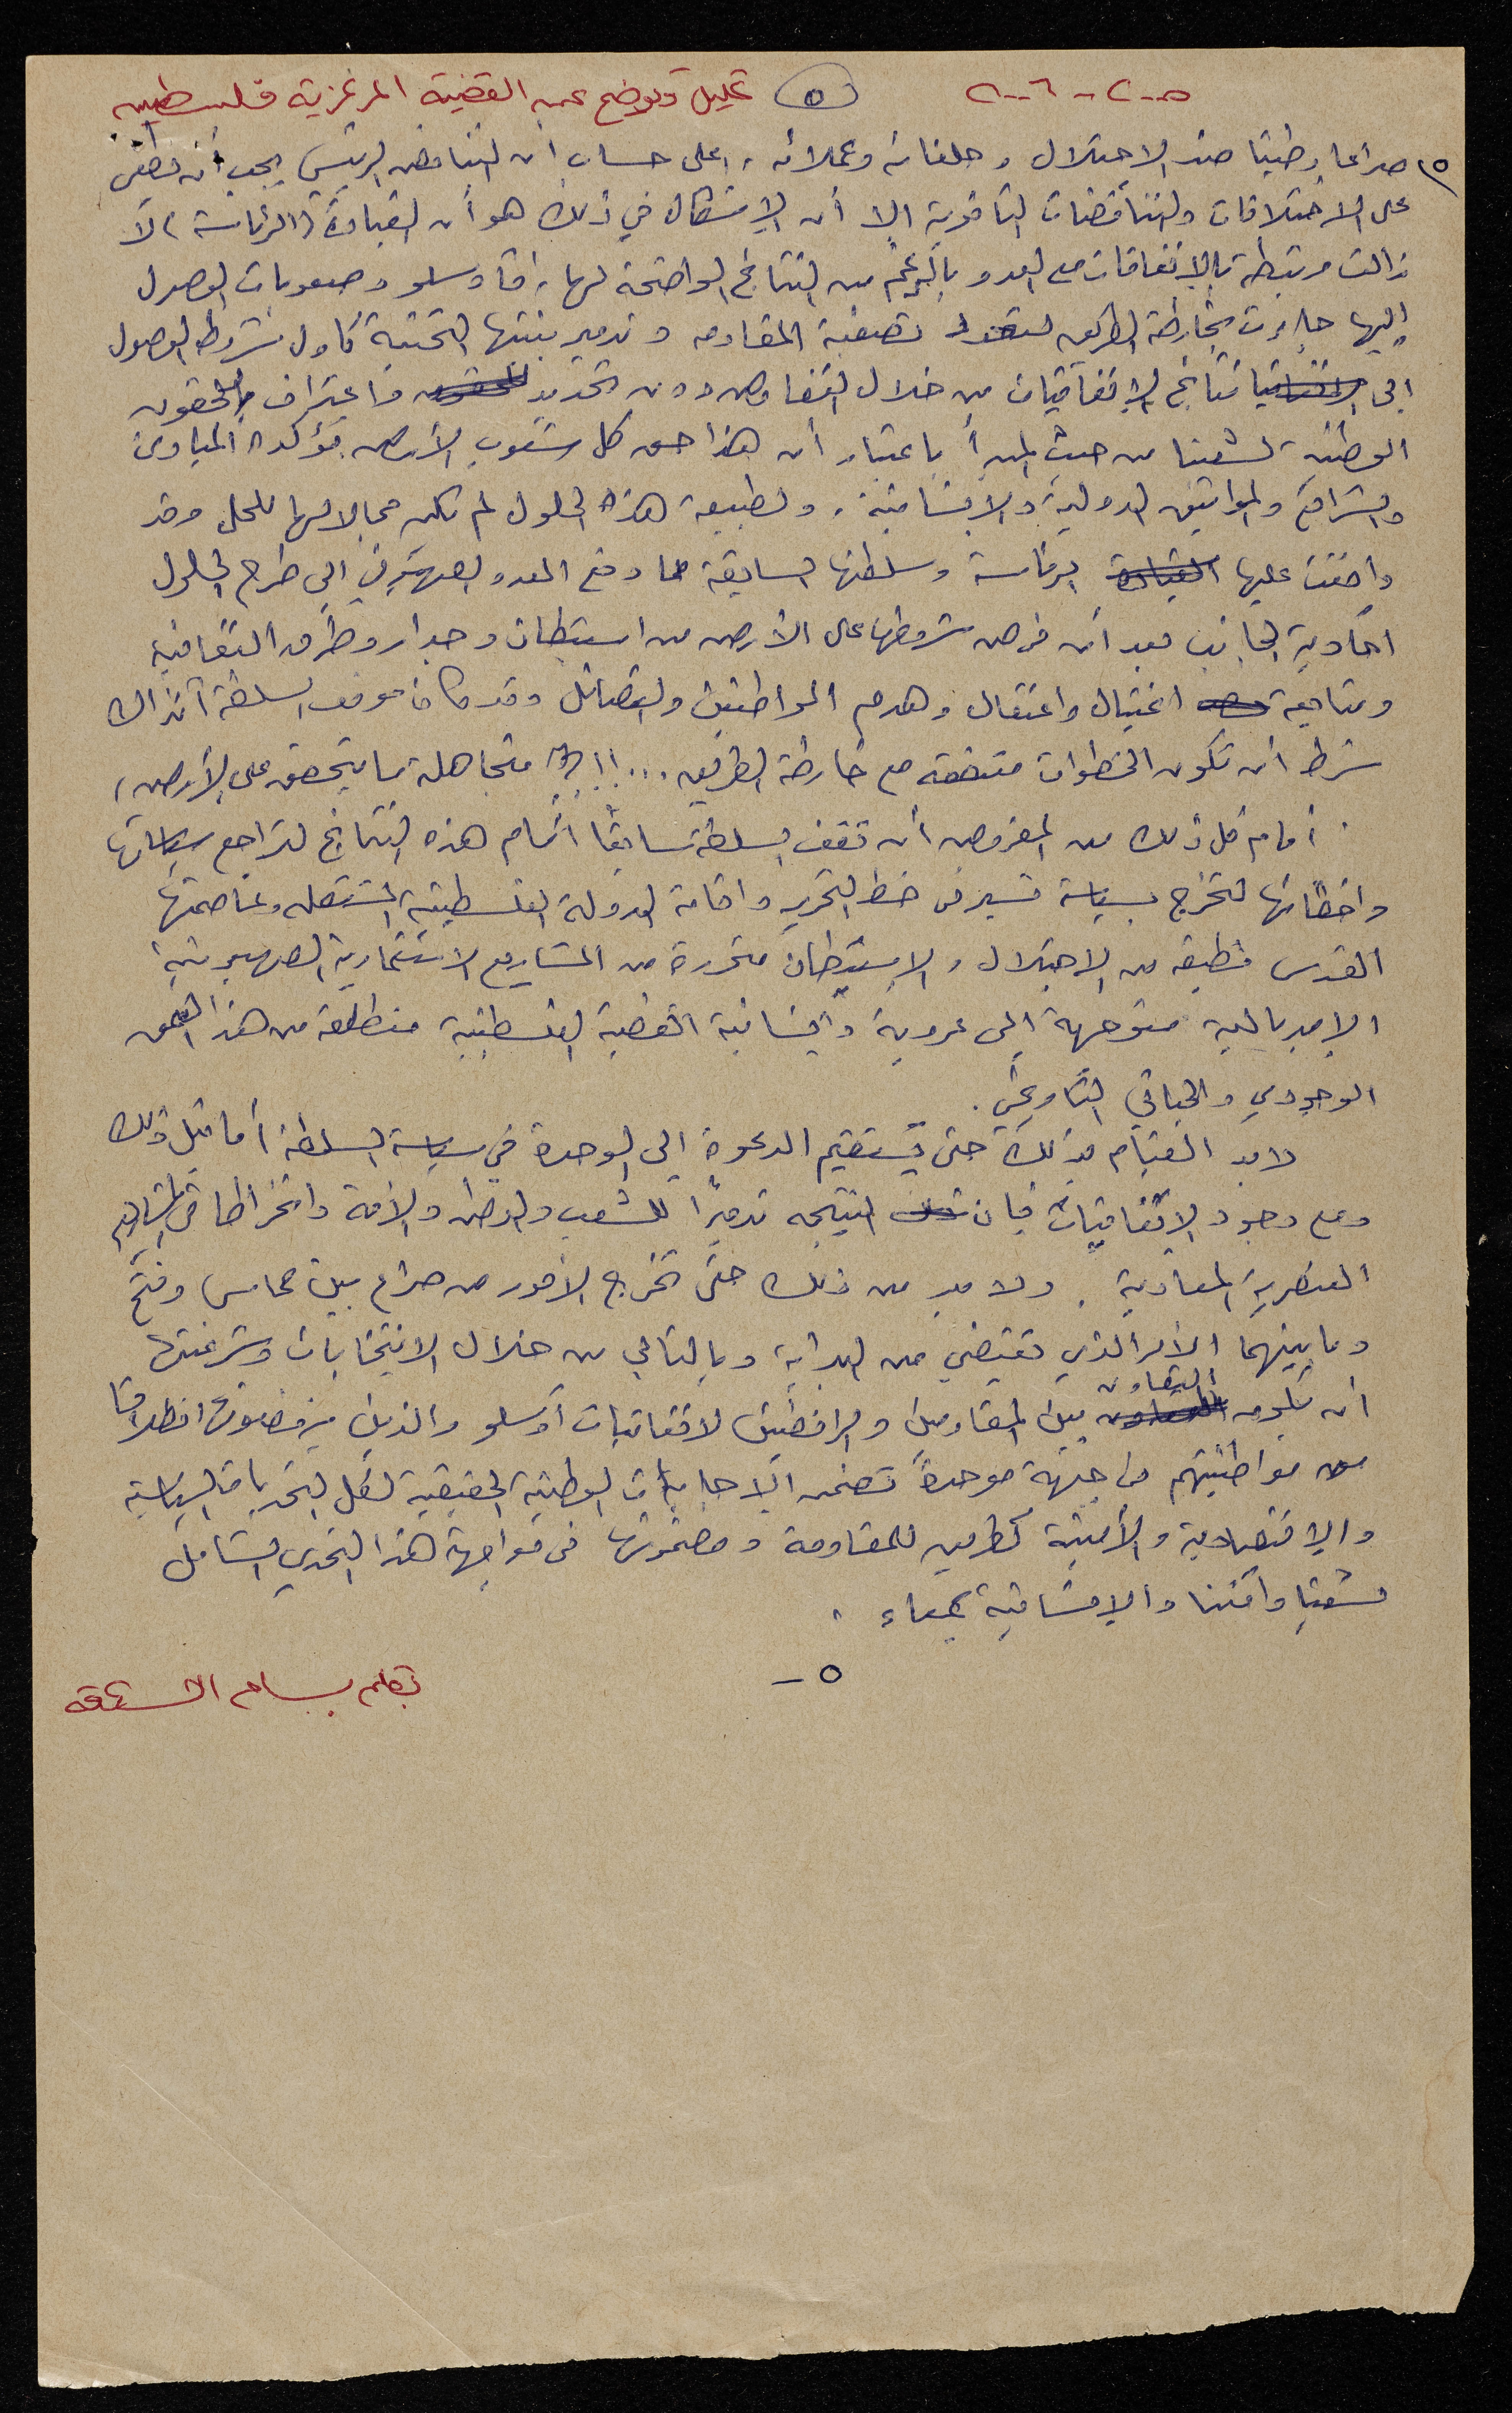 ٢٠٠٥ - ٢٠٠٦ ٥ تحليل وتوضيح عن القضية المركزية فلسطين
٥) صراعا وطنيا ضد الاحتلال وحلفائه وعملائه، على حساب أن التناقض الرئيسي يجب أن يطغى
على الاختلافات والتناقضات الثانوية إلا أن الإشكال في ذلك هو أن القيادة (الرئاسة) لا
زالت مرتبطة بالاتفاقات مع العدو بالرغم من النتائج الواضحة لها، فأوسلو وصعوبات الوصول
إليها جاءت بخارطة الطريق لتصفية المقاومة وتدمير بنيتها التحتية كأول شروط الوصول
إلى نتائج الاتفاقيات من خلال التفاوض دون تحديد واعتراف بالحقوق
الوطنية لشعبنا من حيث المبدأ باعتبار أن هذا حق كل شعوب الأرض تؤكده المبادئ
والشرائع والمواثيق الدولية والإنسانية، ولطبيعة هذه الحلول لم تكن مجالا لها للحل وقد
وافقت عليها الرئاسة وسلطتها السابقة مما دفع العدو الصهيوني إلى طرح الحلول
أحادية الجانب بعد أن فرض شروطها على الأرض من استيطان وجدار وطرق التفافية
ومتابعة اغتيال واعتقال وهدم المواطنين والفصائل وقد كان موقف السلطة آنذاك
شرط أن تكون الخطوات متفقة مع خارطة الطريق ...!! متجاهلة ما يتحقق على الأرض،
أمام كل ذلك من المفروض أن تقف السلطة سابقا أمام هذه النتائج لتراجع سياساتها
وأخطائها لتخرج بسياسة تسير في خط التحرير وإقامة الدولة الفلسطينية المستقلة وعاصمتها
القدس نظيفة من الاحتلال والاستيطان متحررة من المشاريع الاستثمارية الصهيونية
الإمبريالية متوجهة إلى عروبة وإنسانية القضية الفلسطينية منطلقة من هذا العمق
الوجودي والحياتي التاريخي.
لابد القيام بذلك حتى تستقيم الدعوة إلى الوحدة في سياسة السلطة أما قبل ذلك
ومع وجود الاتفاقيات فإن النتيجة تدميرا للشعب والوطن والأمة وانخراطا في المشاريع
العنصرية المعادية. ولابد من ذلك حتى تخرج الأمور من صراع بين حماس وفتح
وما بينهما الأمر الذي يقتضي من البداية وبالتالي من خلال الانتخابات وشرعيتها
أن يكون التعاون بين المقاومين والرافضين لاتفاقيات أوسلو والذين يرفضونها انطلاقا
من مواطنيتهم في جبهة موحدة تضمن الإجابات الوطنية الحقيقية لكل التحديات السياسية
والاقتصادية والأمنية كطريق للمقاومة ومضمونها في مواجهة هذا التحدي الشامل
لشعبنا وأمتنا والإنسانية جمعاء.
٥-
بقلم بسام الشكعة